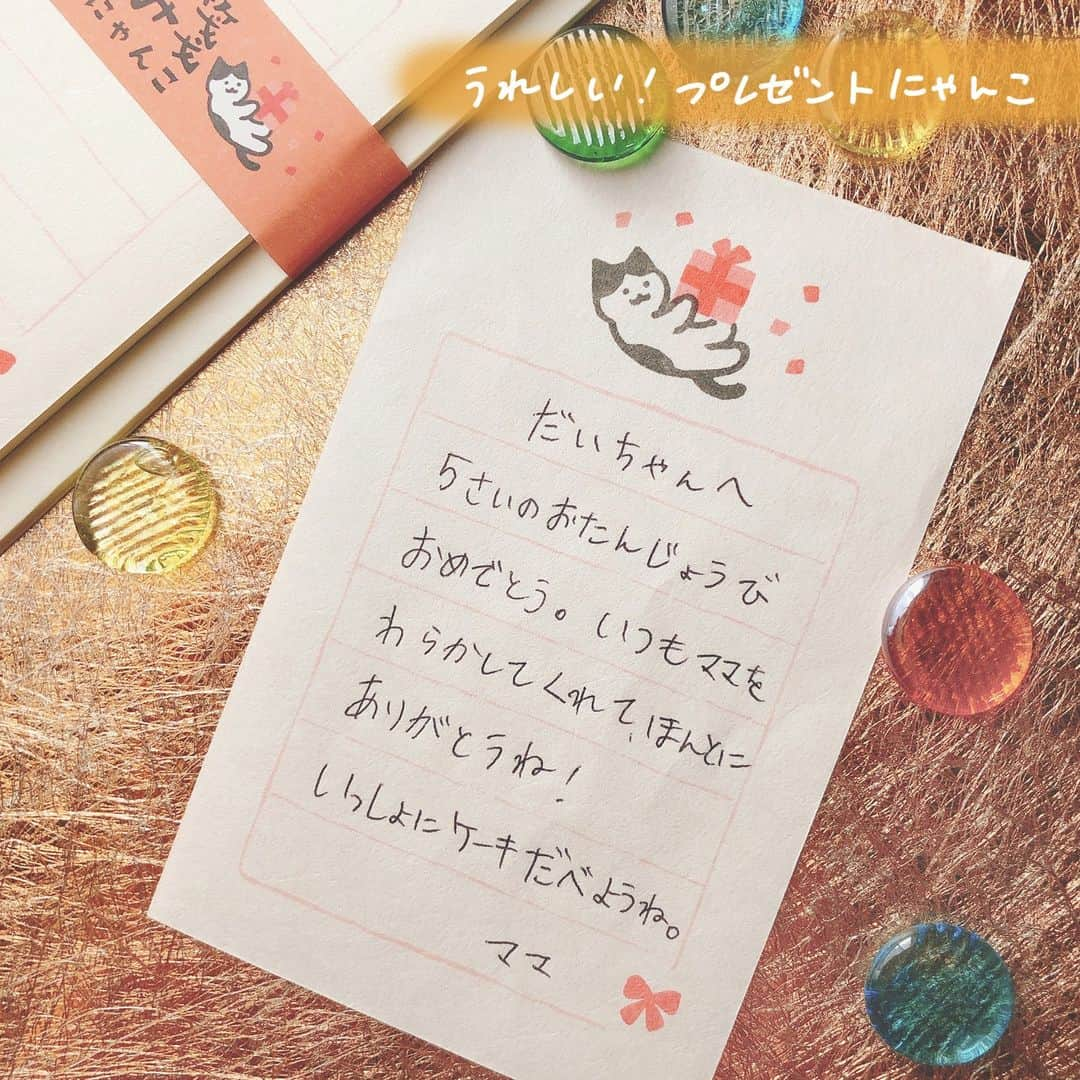 うれしい！プレゼントにゃんこ
にゃんこ
だいちゃんへ
5さいのおたんじょうび
おめでとう。いつもママを
わらかしてくれて、ほんとに
ありがとうね！
いっしょにケーキだべようね。
ママ